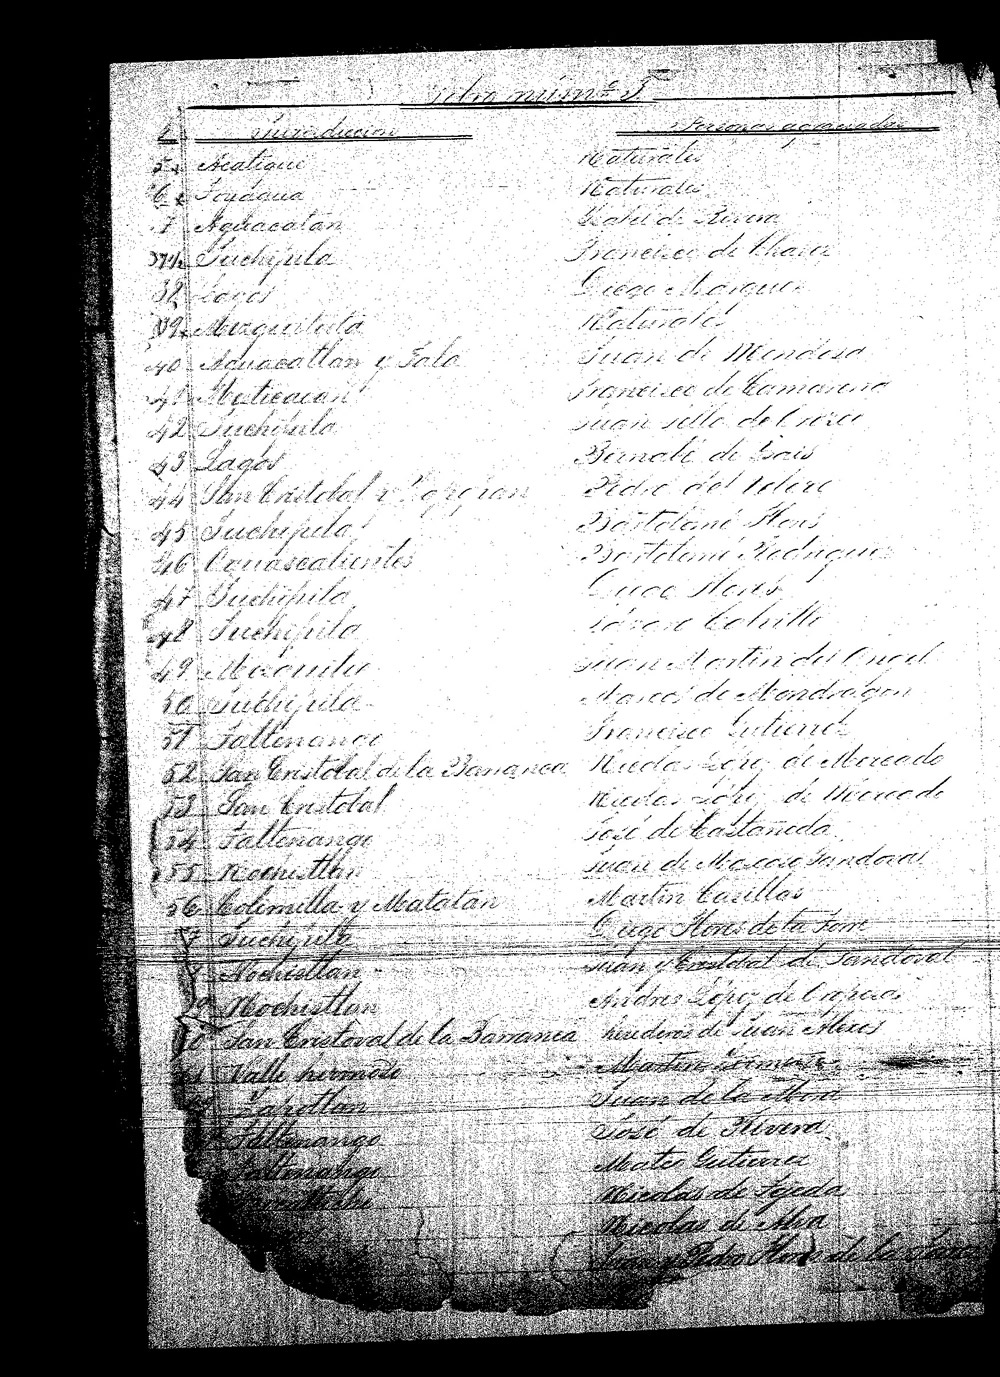 Libro núm.º 3.
Jurisdiccion Personas agraciadas
5 Acatique Naturales
6 Naturales
7 Aguacatan Isabel de Rivera
37½ Juchipila Francisco de Chavez
38 Lagos Diego Marquez
39 Mezquituta Naturales
40 Aguacatlan y Tala Juan de Mendosa
41 Maticacan Francisco de Camarena
42 Juchipila Juan de Orozco
43 Lagos Bernabé de Isais
44 San Cristobal y Zapopan Pedro del
45 Juchipila Bartolomé Flores
46 Aguascalientes Bartolomé Rodriguez
47 Juchipila Diego Flores
48 Juchipila Lázaro Calvillo
49 Juan Martin del Angel
50 Juchipila Marcos de Mondragon
51 Taltenango Francisco Gutierrez
52 San Cristobal de la Barranca Nicolas López de Mercado
53 San Cristobal Nicolas López de Mercado
54 Taltenango José de Castañeda
55 Nochistlan Juan de Sandoval
56 Colimilla y Matatan Martin Casillas
7 Juchipila Diego Flores de la Torre
Nochistlan Juan y Cristobal de Sandoval
9 Nochistlan Andres López de
0 San Cristoval de la Barranca herederos de Juan
Valle hermoso Martin
Zapotlan Juan de la Mora
Taltenango José de Rivera
Taltenango Mateo Gutierrez
Nicolas de Tejeda
Nicolas de Alva
Juan y Pedro Flores de la